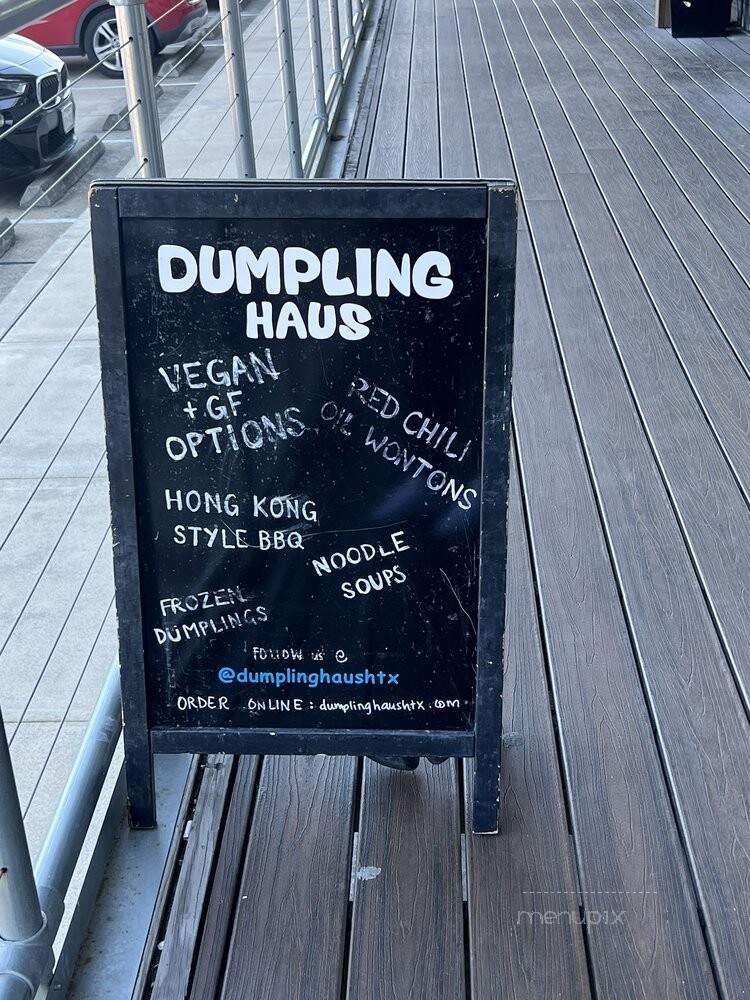 DUMPLING
HAUS
VEGAN
+ GF
OPTIONS
RED CHILI
OIL WONTONS
HONG KONG
STYLE BBQ
NOODLE
SOUPS
FROZEN
DUMPLINGS
FOLLOW us @
@dumplinghaushtx
ORDER ONLINE: dumplinghaushtx.com
menupix